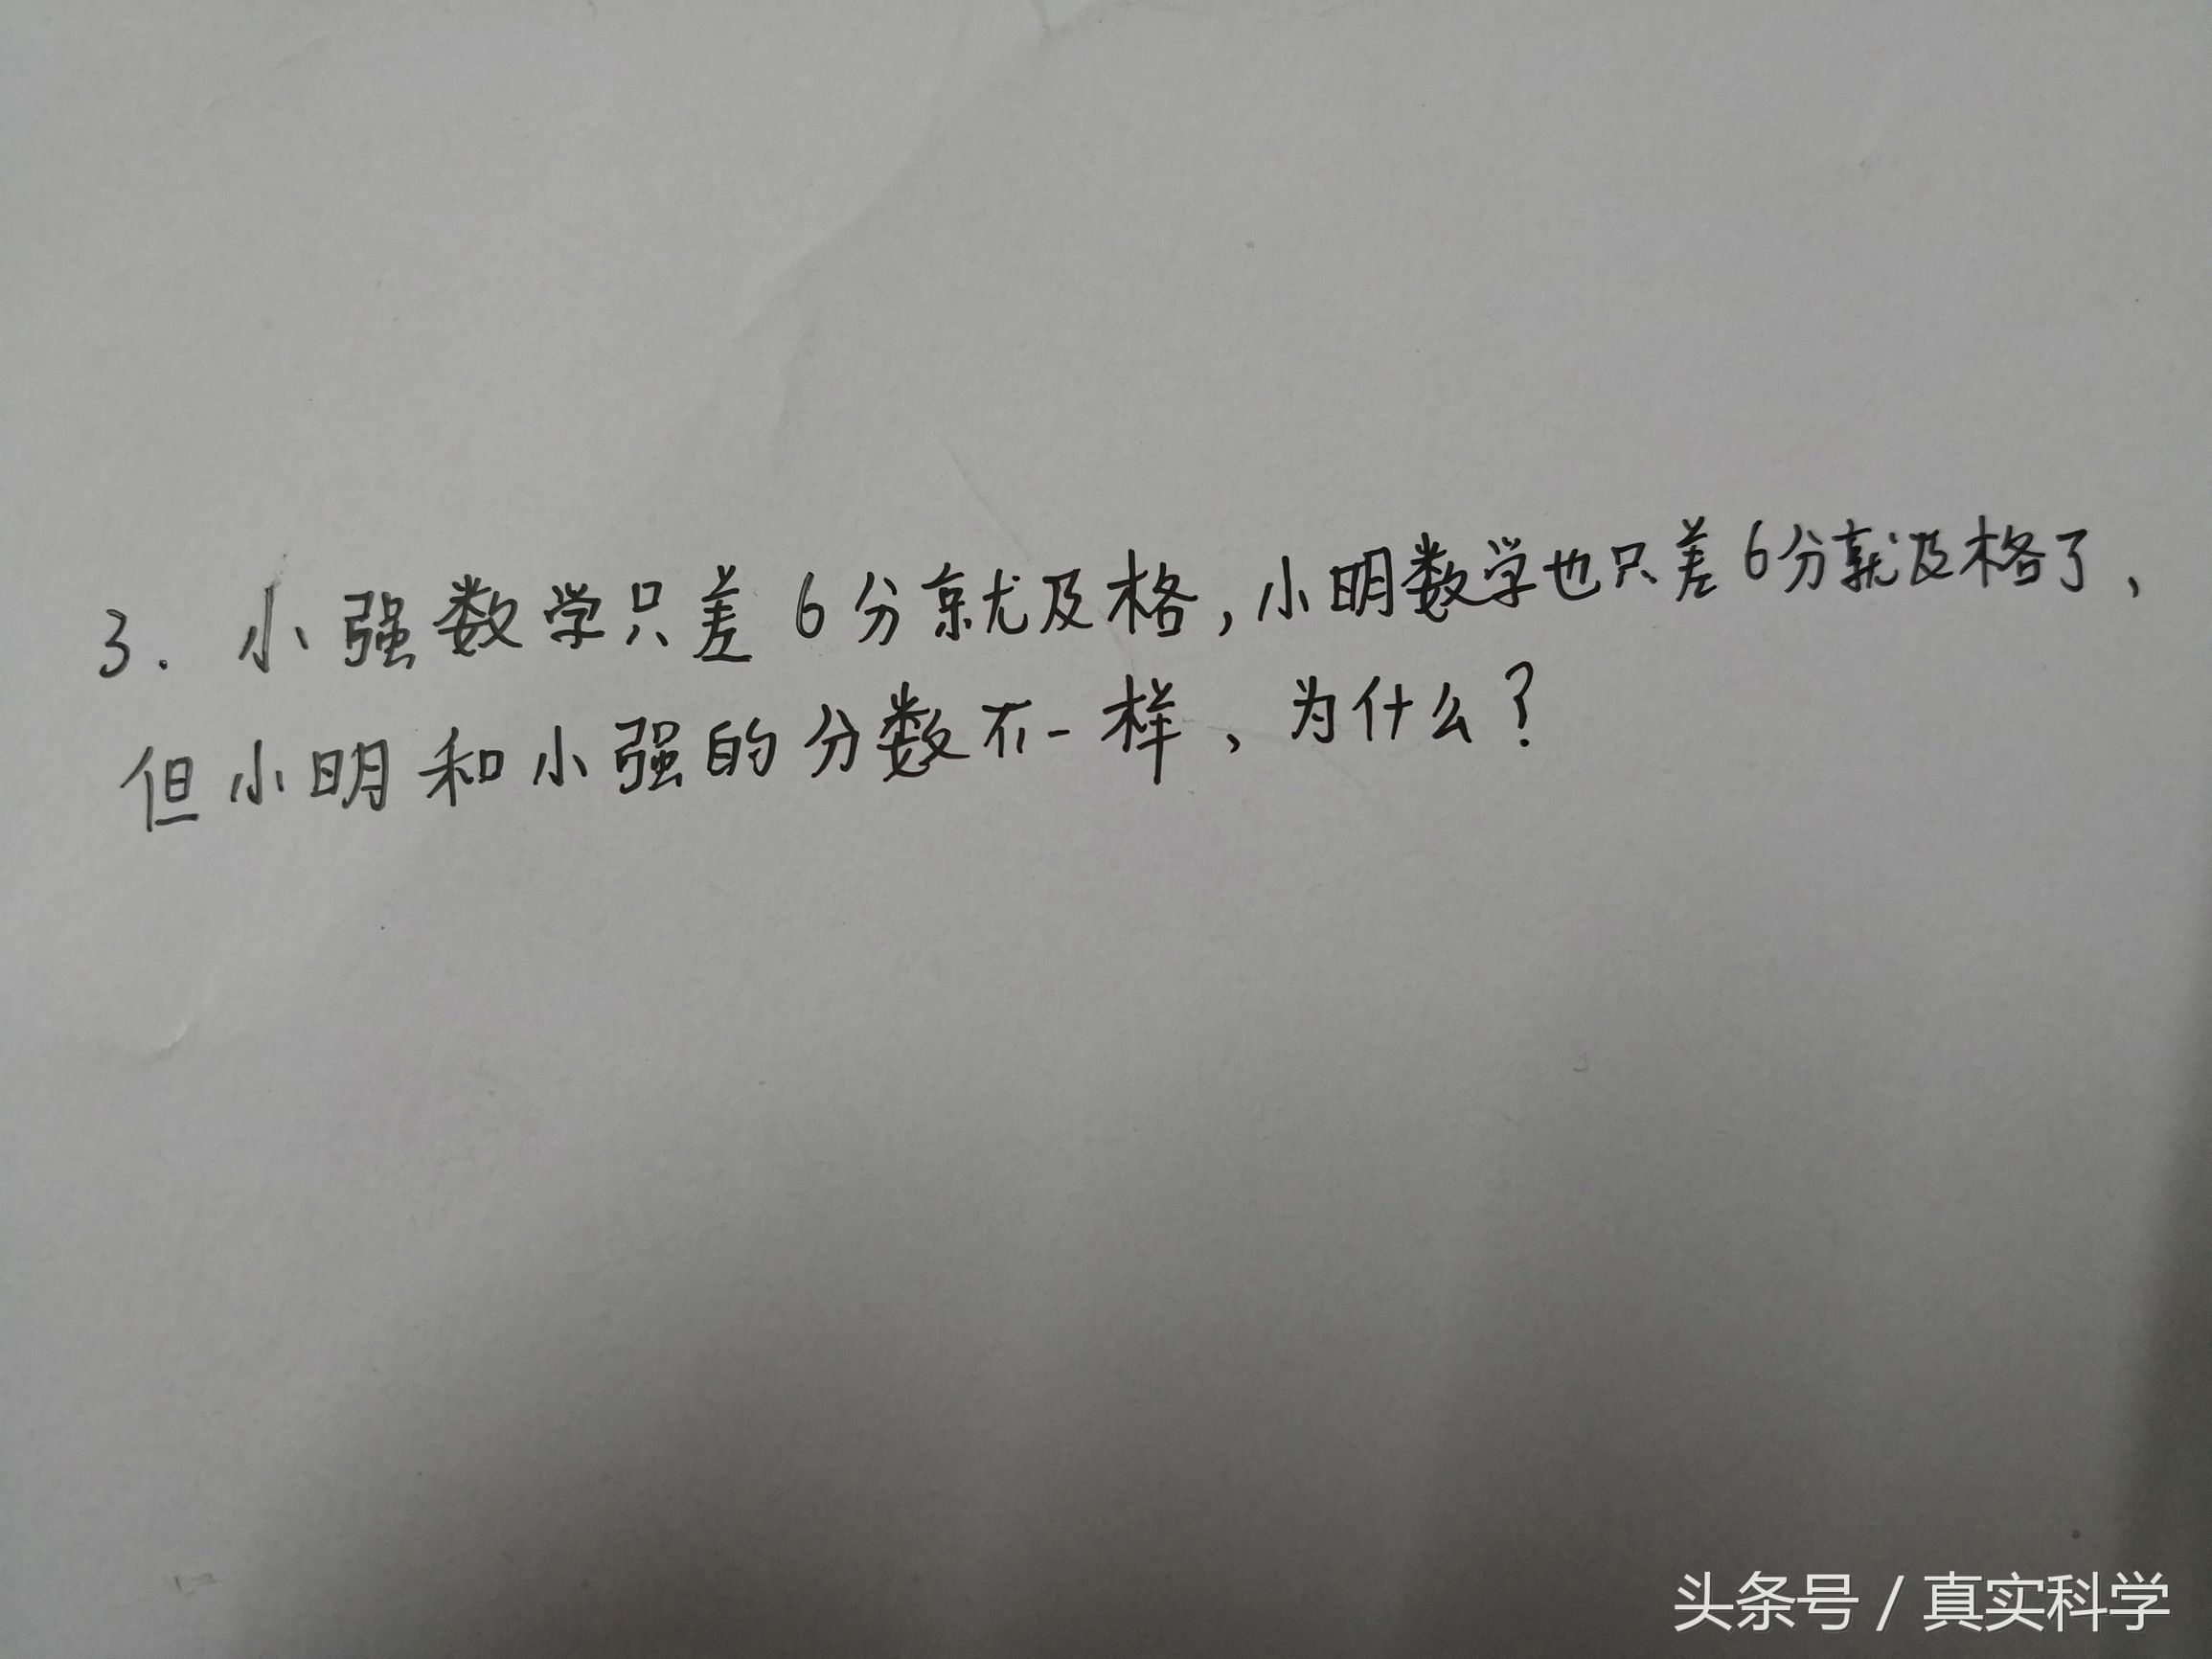 3. 小强数学只差6分就及格,小明数学也只差6分就及格了,
但小明和小强的分数不一样,为什么?
头条号 / 真实科学